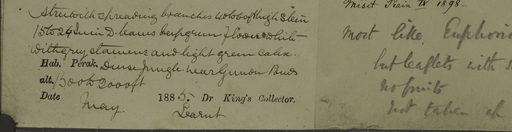 Tree with spreading branches 40 to 60 ft high & stem
15 to 24 in in D. leaves deep green flowers white
with grey stamens and light green calix.
Hab. Perak. Dense jungle near Gunon Bubu
alt. 1500 to 2000 ft
Date May. 1885. Dr King's Collector.
1898.
most like
but leaflets with
no fruits
not taken